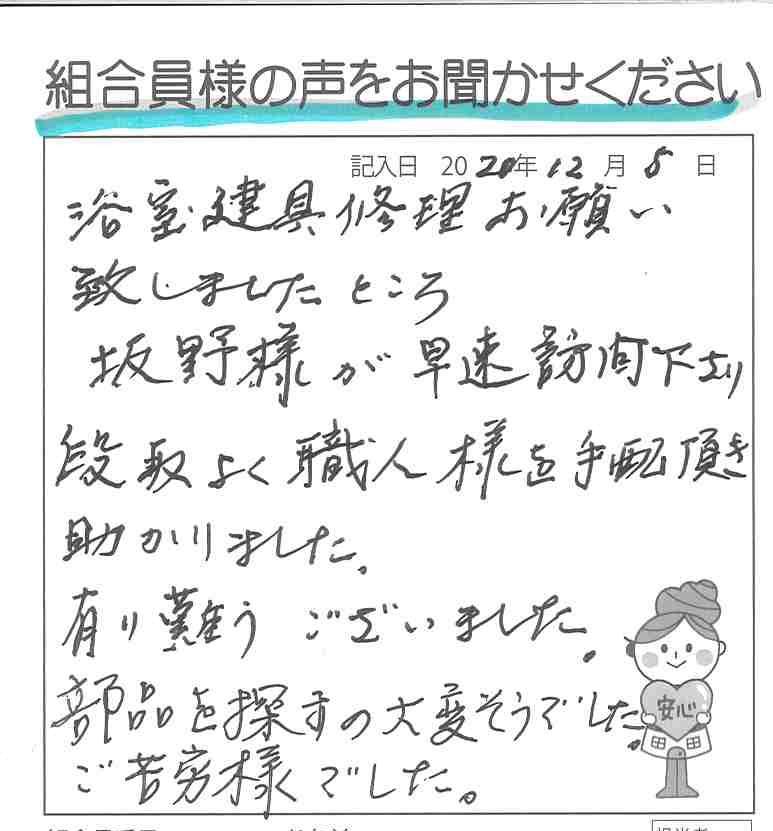 組合員様の声をお聞かせください
記入日 2020年12月8日
浴室建具修理お願い
致しましたところ
坂野様が早速訪問下さり
段取よく職人様を手配頂き
助かりました。
有り難うございました。
部品を探すの大変そうでした。
ご苦労様でした。
安心